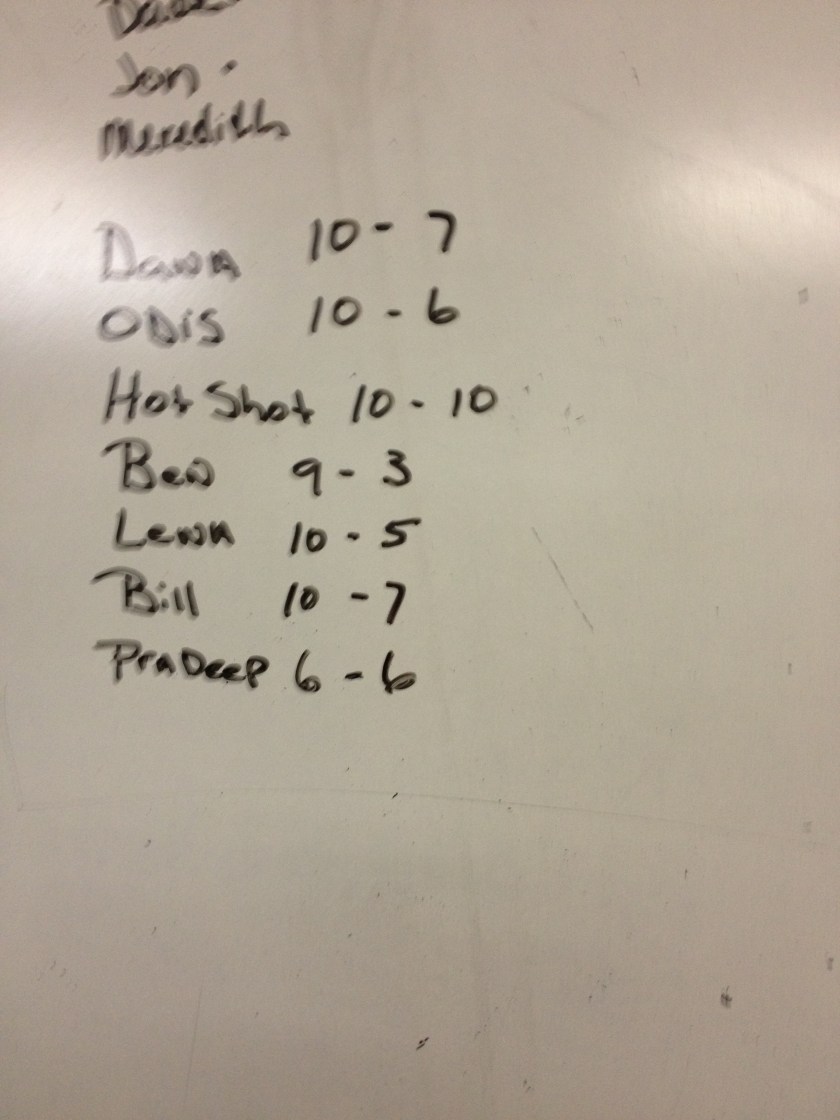 Jon
Meredith
Dawn 10 - 7
ODiS 10 - 6
Hot Shot 10 - 10
Ben 9 - 3
Lewn 10 - 5
Bill 10 - 7
PraDeep 6 - 6